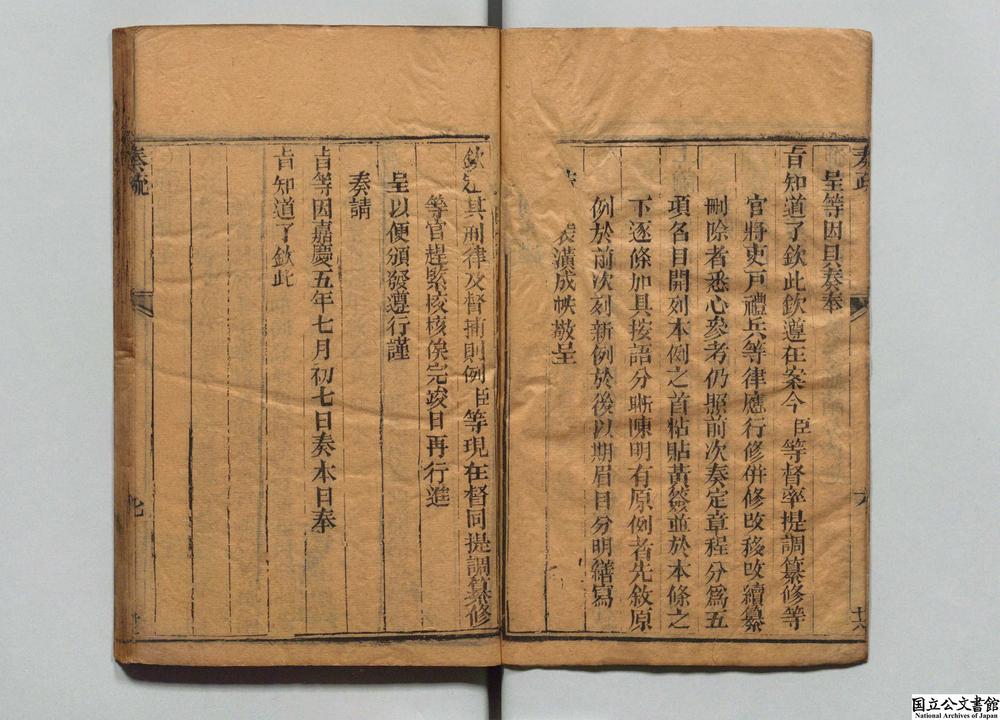 奏疏
呈等因具奏奉
旨知道了欽此欽遵在案今臣等督率提調纂修等
官將吏戶禮兵等律應行修併修改移改續纂
刪除者悉心參考仍照前次奏定章程分為五
項名目開列本例之首粘貼黃簽並於本條之
下逐條加具按語分晰陳明有原例者先敘原
例於前次列新例於後以期眉目分明繕寫
裝潢成帙敬呈
欽定其刑律及督捕則例臣等現在督同提調纂修
等官趕緊核俟完竣日再行進
呈以便頒發遵行謹
奏請
旨等因嘉慶五年七月初七日奏本日奉
旨知道了欽此
奏疏
国立公文書館
National Archives of Japan